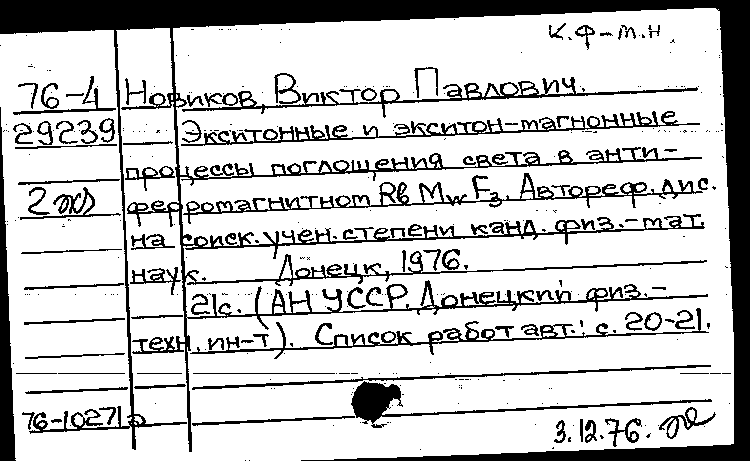 К.Ф-М.Н.
76-4 Новиков, Виктор Павлович.
29239 Экситонные и экситон-магнонные
процессы поглощения света в анти-
2 ферромагнитном Rb Mn F3. Автореф. дис.
на соиск. учен. степени канд. физ.-мат.
наук. Донецк, 1976.
21с. (АН УССР. Донецкий физ.-
техн. ин-т). Список работ авт.: с. 20-21.
76-10271
3.12.76.